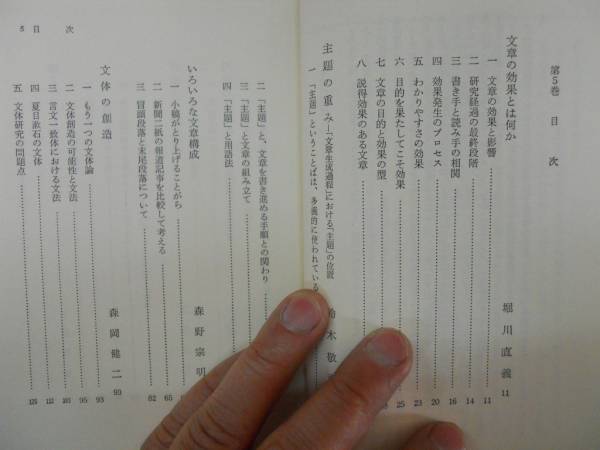 第5巻 目次
文章の効果とは何か 堀川直義 11
一 文章の効果と影響 11
二 研究経過の最終段階 14
三 書き手と読み手の相関 16
四 効果発生のプロセス 20
五 わかりやすさの効果 23
六 目的を果たしてこそ効果 25
七 文章の目的と効果の型
八 説得効果のある文章
主題の重み―「文章生成過程」における「主題」の位置 木敏
一 「主題」ということばは、多義的に使われている
二 「主題」と、文章を書き進める手順との関わり
三 「主題」と文章の組み立て
四 「主題」と用語法
いろいろな文章構成 森野宗明
一 小稿がとり上げることがら 65
二 新聞二紙の報道記事を比較して考える 82
三 冒頭段落と末尾段落について
文体の創造 森岡健二 93
一 もう一つの文体論 93
二 文体創造の可能性と文法 95
三 言文一致体における文法 103
四 夏目漱石の文体 112
五 文体研究の問題点 125
5 目次